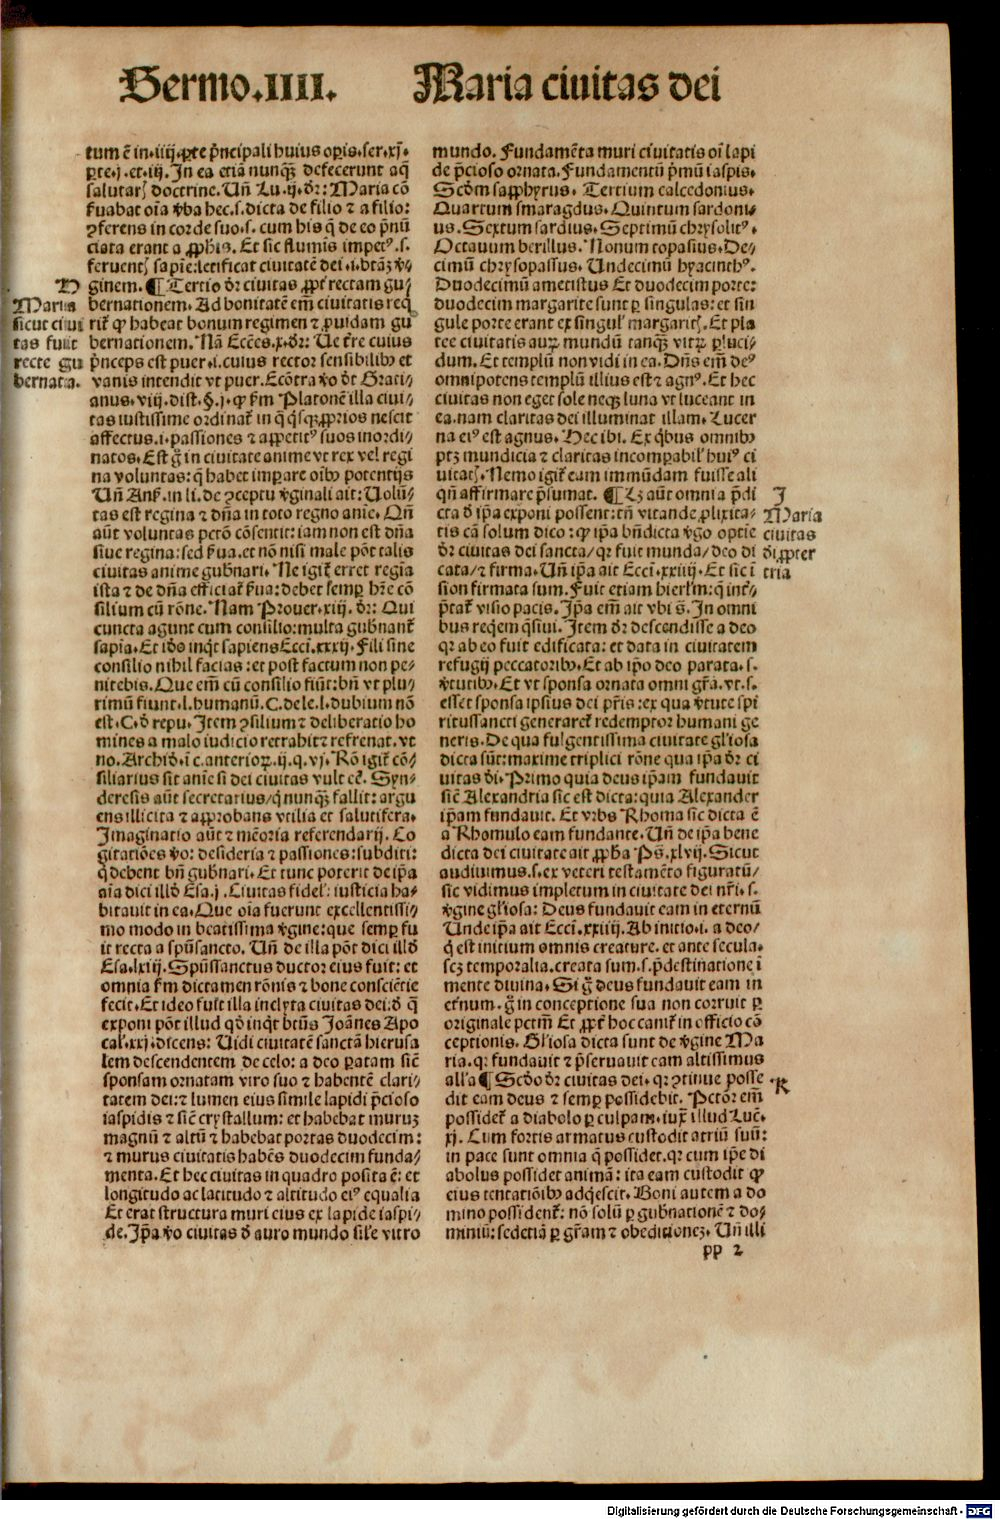 Sermo.IIII. Maria ciuitas dei
tum ē in.iiij.ꝑte p̄ncipali huius oꝑis.ser.xj.
ꝑte.j.et.iij. In ea etiā nunqꝫ defecerunt aq̄
salutarꝭ doctrine. Uñ Lu.ij.dr̄: Maria cō
ẜuabat oīa v̄ba hec.s.dicta de filio ⁊ a filio:
ꝯferens in corde suo.s. cum his q̄ de eo p̄nū
ciata erant a ꝓphis. Et sic flumīs impetꝰ.s.
feruentꝭ sapīe:letificat ciuitatē dei.i.btāꝫ v̄-
ginem. ¶ Tertio dr̄ ciuitas ꝓpt̄ rectam gu⸗
bernationem. Ad bonitatē em̄ ciuitatis req̄
rit̄ ꝙ habeat bonum regimen ⁊ ꝓuidam gu
bernationem. Nā Ecc̄es.x.dr̄: Ue t̄re cuius
p̄nceps est puer.i.cuius rector sensibilibꝫ et
vanis intendit vt puer. Ecōtra v̄o dt̄ Grati⸗
anus.viij.dist.§.j.ꝙ ẜm Platonē illa ciui⸗
tas iustissime ordinat̄ in q̄ q̇sqꝫ ꝓprios nescit
affectus.i.passiones ⁊ appetitꝰ suos inordi⸗
natos. Est g̊ in ciuitate anime vt rex vel regi
na voluntas: q̄ habet imꝑare oībꝫ potentijs
Uñ Anẜ. in li. de ꝯceptu v̄ginali ait: Uolū⸗
tas est regina ⁊ dn̄a in toto regno anīe. Qn̄
aūt voluntas pctō cōsentit: iam non est dn̄a
siue regina: sed ẜua. et nō nisi male pōt talis
ciuitas anime gub̄nari. Ne igit̄ erret regīa
ista ⁊ de dn̄a efficiat̄ ẜua: debet semꝑ hr̄e cō
silium cū rōne. Nam Prouer.xiij. dr̄: Qui
cuncta agunt cum consilio: multa gub̄nant̄
sapīa. Et iō inq̇t sapiens Ecci.xxxij. Fili sine
consilio nihil facias: et post factum non pe⸗
nitebis. Que em̄ cū consilio fiūt: bn̄ vt plu⸗
rimū fiunt.l.humanū. C. de le.l.dubium nō
est. C. d̄ repu. Item ꝯsilium ⁊ deliberatio ho
mines a malo iudicio retrahit ⁊ refrenat. vt
no. Archid̄.ī c. anterioꝝ.ij.q.vj. Rō igit̄ cō⸗
siliarius sit anīe si dei ciuitas vult eē. Syn⸗
deresis aūt secretarius/q̄ nunqꝫ fallit: argu
ens illicita ⁊ approbans vtilia et salutifera.
Imaginatio aūt ⁊ mēoria referendarij. Co
gitatiōes v̄o: desideria ⁊ passiones: subditi:
q̇ debent bn̄ gub̄nari. Et tunc poterit de ip̄a
aīa dici illd̄ Esa.j. Ciuitas fidel̓: iusticia ha⸗
bitauit in ea. Que oīa fuerunt excellentissi⸗
mo modo in beatissima v̄gine: que semꝑ fu
it recta a spūsancto. Uñ de illa pōt dici illd̄
Esa.lxiij. Spūssanctus ductor eius fuit: et
omnia ẜm dictamen rōnis ⁊ bone consciētie
fecit. Et ideo fuit illa inclyta ciuitas dei: d̄ q̄
exponi pōt illud qd̄ inq̇t btūs Joānes Apo
cal̓.xxj.dicens: Uidi ciuitatē sanctā hierusa
lem descendentem de celo: a deo ꝑatam sic̄
sponsam ornatam viro suo ⁊ habentē clari⸗
tatem dei: ⁊ lumen eius simile lapidi p̄cioso
iaspidis ⁊ sic̄ crystallum: et habebat muruꝫ
magnū ⁊ altū ⁊ habebat portas duodecim:
⁊ murus ciuitatis habēs duodecim funda⸗
menta. Et hec ciuitas in quadro posita ē: et
longitudo ac latitudo ⁊ altitudo eiꝰ equalia
Et erat structura muri eius ex lapide iaspi⸗
de. Ip̄a v̄o ciuitas d̄ auro mundo sil̓e vitro
D
Maria
sicut ciui
tas fuit
recte gu
bernata.
mundo. Fundamēta muri ciuitatis oī lapi
de p̄cioso ornata. Fundamentū p̄mū iaspis.
Scd̄m sapphyrus. Tertium calcedonius.
Quartum smaragdus. Quintum sardoni⸗
us. Sextum sardius. Septimū chrysolitꝰ.
Octauum berillus. Nonum topasius. De⸗
cimū chrysopassus. Undecimū hyacinthꝰ.
Duodecimū ametistus Et duodecim porte:
duodecim margarite sunt ꝑ singulas: et sin
gule porte erant ex singul̓ margaritꝭ. Et pla
tee ciuitatis auꝝ mundū tanqꝫ vitꝝ ꝑluci⸗
dum. Et templū non vidi in ea. Dn̄s em̄ deꝰ
omnipotens templū illius est ⁊ agnꝰ. Et hec
ciuitas non eget sole neqꝫ luna vt luceant in
ea. nam claritas dei illuminat illam. Lucer
na eiꝰ est agnus. Hec ibi. Ex q̇bus omnibꝫ
ptꝫ mundicia ⁊ claritas incomꝑabil̓ huiꝰ ci
uitatꝭ. Nemo igit̄ eam immūdam fuisse ali
qn̄ affirmare p̄sumat. ¶ Lꝫ aūt omnia p̄di
cta d̄ ip̄a exponi possent: tn̄ vitande ꝓlixita⸗
tis cā solum dico: ꝙ ip̄a bn̄dicta v̄go optīe
dr̄ ciuitas dei sancta/qꝛ fuit munda/deo di
cata/⁊ firma. Uñ ip̄a ait Ecci.xxiiij. Et sic ī
sion firmata sum. Fuit etiam hierl̓m: q̄ int̄⸗
p̄tat̄ visio pacis. Ip̄a em̄ ait vbi s̄. In omni
bus req̇em q̄siui. Item dr̄ descendisse a deo
qꝛ ab eo fuit edificata: et data in ciuitatem
refugij peccatoribꝫ. Et ab ip̄o deo parata.s.
v̄tutibꝫ. Et vt sponsa ornata omni gr̄a.vt.s.
esset sponsa ipsius dei pr̄is: ex qua v̄tute spi
ritussancti generaret̄ redemptor humani ge
neris. De qua fulgentissima ciuitate gl̓iosa
dicta sūt: maxime triplici rōne qua ip̄a dr̄ ci
uitas d̄i. Primo quia deus ip̄am fundauit
sic̄ Alexandria sic est dicta: quia Alexander
ip̄am fundauit. Et vrbs Rhoma sic dicta ē
a Rhomulo eam fundante. Uñ de ip̄a bene
dicta dei ciuitate ait ꝓpha Ps̄.xlvij. Sicut
audiuimus.s.ex veteri testamēto figuratū/
sic vidimus impletum in ciuitate dei nr̄i.s.
v̄gine gl̓iosa: Deus fundauit eam in eternū
Unde ip̄a ait Ecci.xxiiij. Ab initio.i. a deo/
q̇ est initium omnis creature. et ante secula.
scꝫ temporalia. creata sum.s. p̄destinatione ī
mente diuina. Si g̊ deus fundauit eam in
et̄num. g̊ in conceptione sua non corruit ꝑ
originale pctm̄ Et ꝓpt̄ hoc canit̄ in officio cō
ceptionis. Gl̓iosa dicta sunt de v̄gine Ma
ria. qꝛ fundauit ⁊ p̄seruauit eam altissimus
all̓a ¶ Scd̄o dr̄ ciuitas dei. qꝛ ꝯtinue posse
dit eam deus ⁊ semꝑ possidebit. Pctōr em̄
possidet̄ a diabolo ꝑ culpam. iuxͭ illud Luc̄.
xj. Cum fortis armatus custodit atriū suū:
in pace sunt omnia q̄ possidet. qꝛ cum ip̄e di
abolus possidet animā: ita eam custodit ꝙ
eius tentatiōibꝫ adq̇escit. Boni autem a do
mino possident̄: nō solū ꝑ gub̄nationē ⁊ do⸗
miniū: sed etiā ꝑ gr̄am ⁊ obeditionēꝫ. Uñ illi
J
Maria
ciuitas
d̄i ꝓpter
tria
K
pp 2
Digitalisierung gefördert durch die Deutsche Forschungsgemeinschaft - DFG